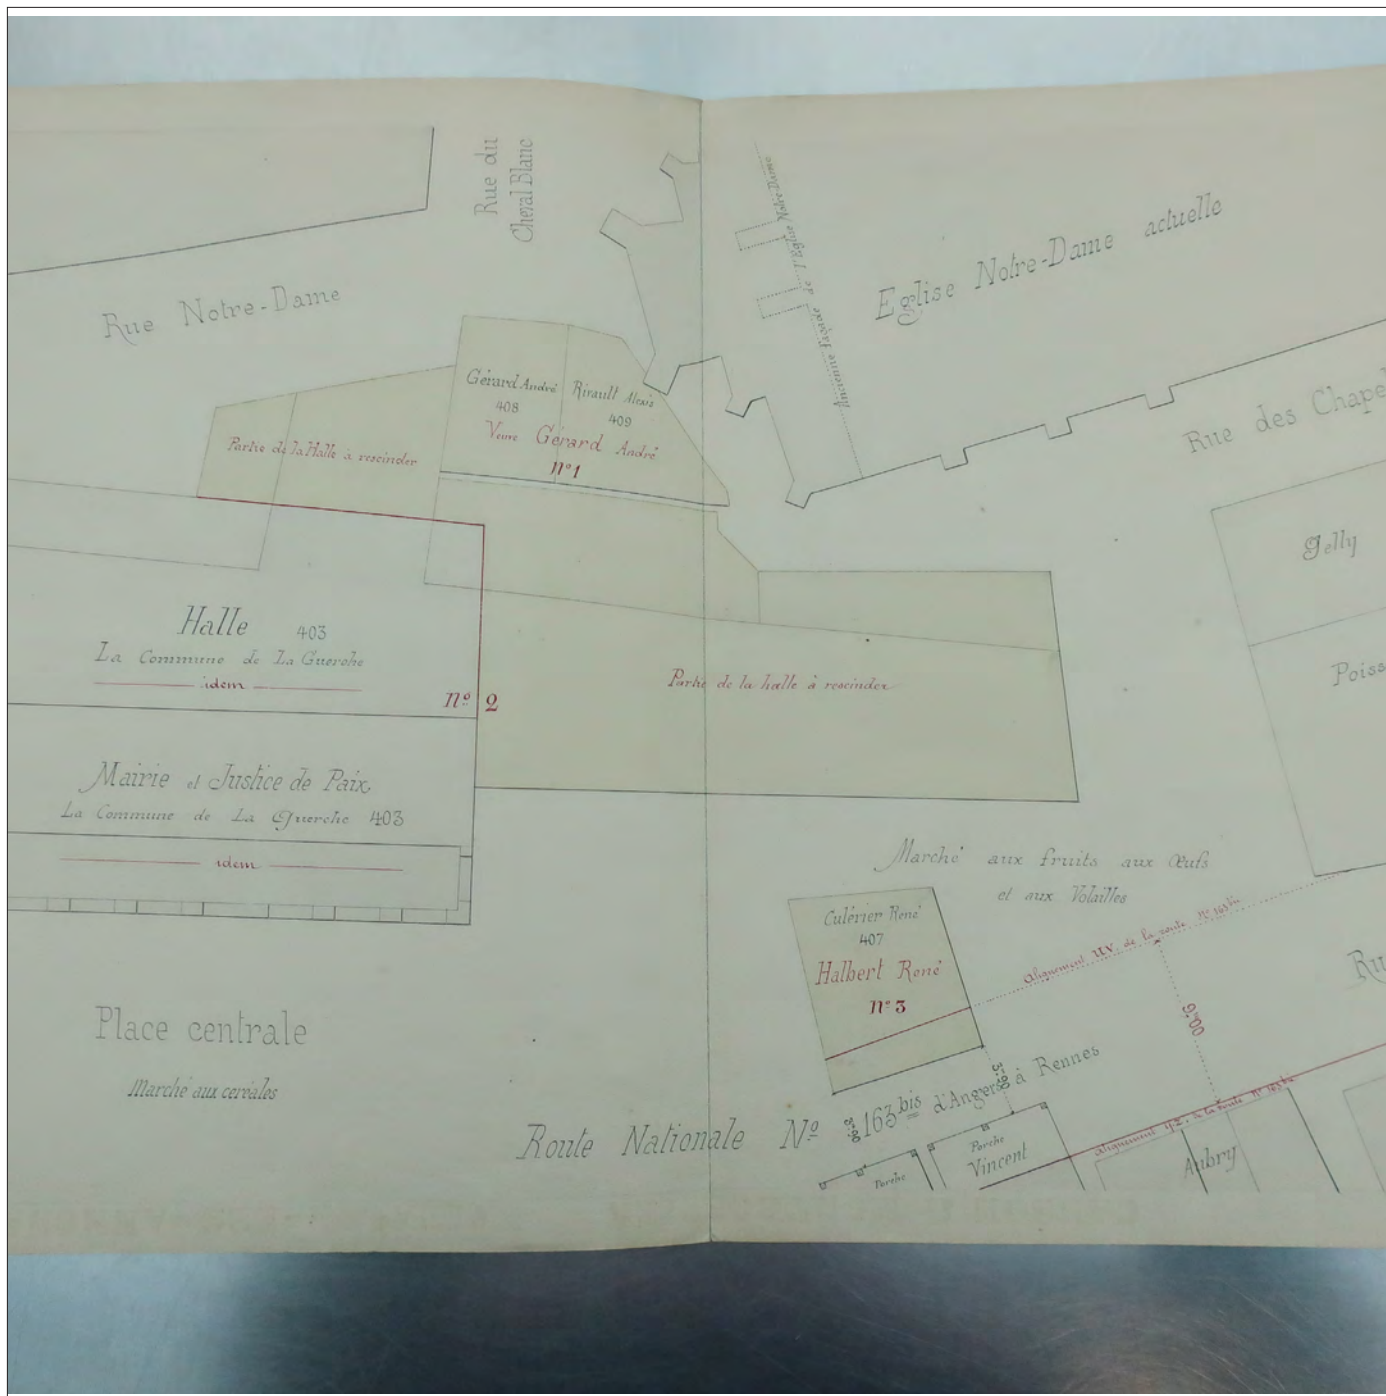 Rue du
Cheval Blanc
Rue Notre-Dame
Ancienne façade de l'Eglise Notre-Dame
Eglise Notre-Dame actuelle
Rue des Chapel
Gérard André
408
Rirault Alexis
409
Veuve Gérard André
N°1
Partie de la Halle à rescinder
Gelly
Poiss
Halle 403
La Commune de La Guerche
idem
N° 2
Partie de la halle à rescinder
Mairie et Justice de Paix
La Commune de La Guerche 403
idem
Marché aux fruits aux Œufs
et aux Volailles
Culérier René
407
Halbert René
N° 3
Alignement UV. de la route N° 163 bis
Ru
9m00
Place centrale
Marché aux céréales
Route Nationale N° 163 bis d'Angers à Rennes
Porche
Porche
Vincent
Alignement YZ. de la route N° 163 bis
Aubry